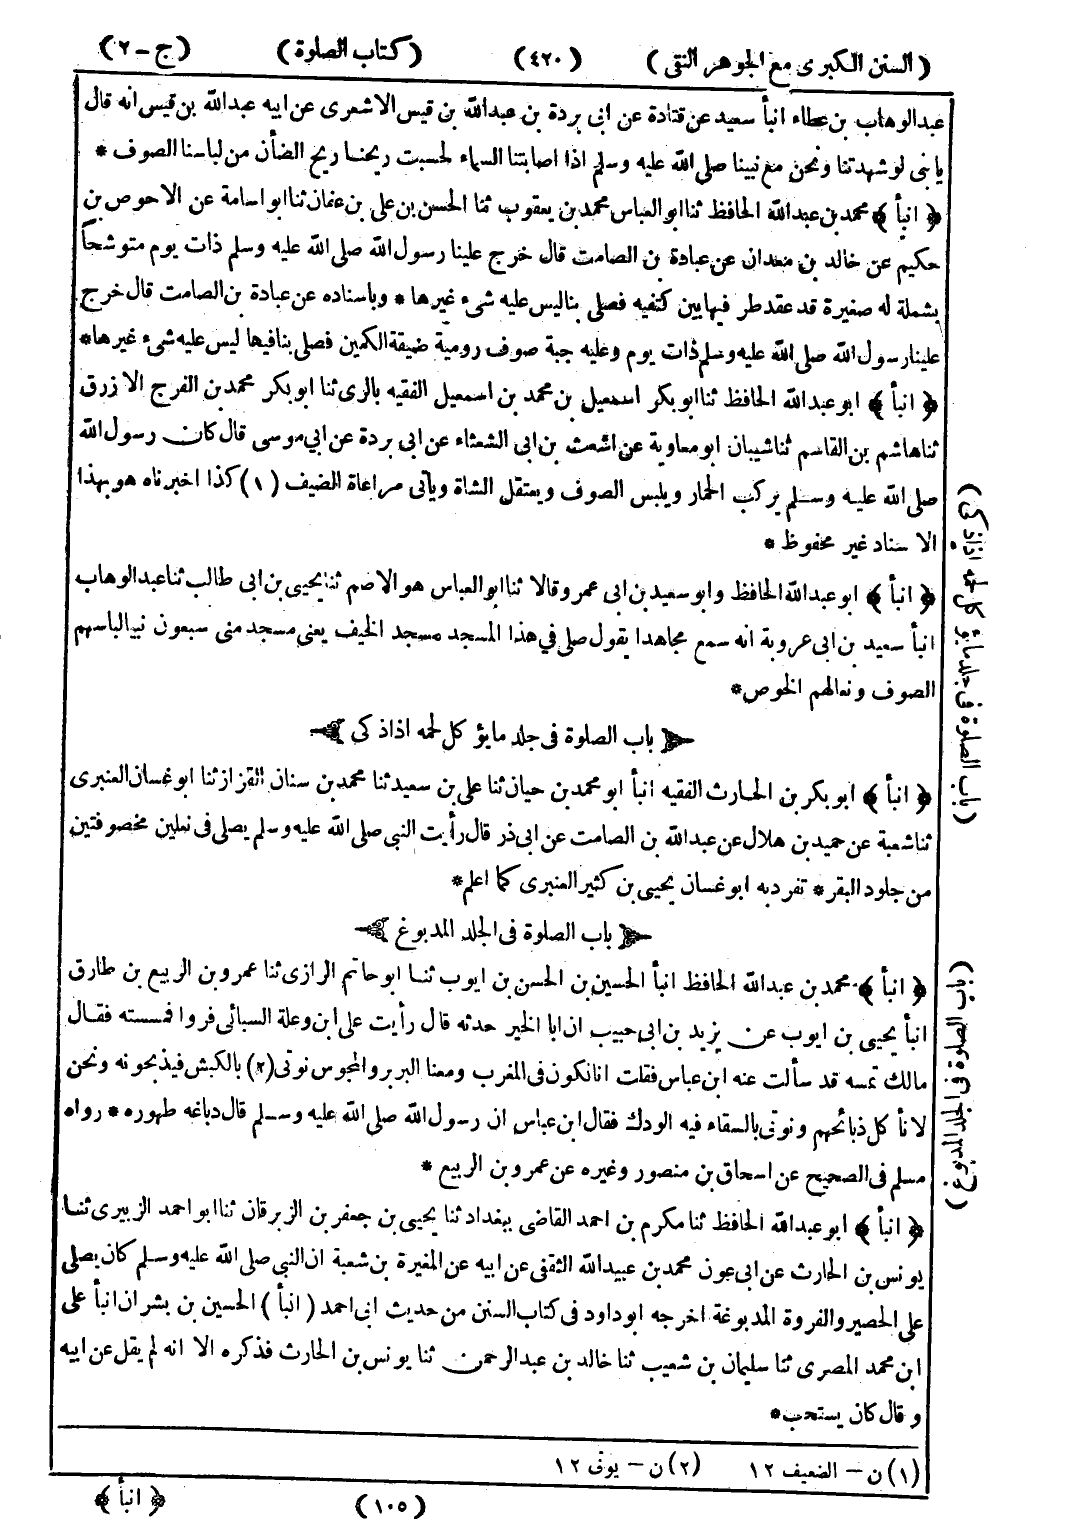 ( السنن الكبرى مع الجوهر النقى ) ( ٤٢٠ ) ( كتاب الصلوة ) ( ج - ٢ )
عبدالوهاب بن عطاء انبأ سعيد عن قتادة عن ابى بردة بن عبدالله بن قيس الاشعرى عن ابيه عبدالله بن قيس انه قال
يا بنى لو شهدتنا ونحن مع نبينا صلى الله عليه وسلم اذا اصابتنا السماء لحسبت ريحنا ريح الضأن من لباسنا الصوف *
﴿ انبأ ﴾ محمد بن عبدالله الحافظ ثنا ابو العباس محمد بن يعقوب ثنا الحسن بن على بن عفان ثنا ابو اسامة عن الاحوص بن
حكيم عن خالد بن معدان عن عبادة بن الصامت قال خرج علينا رسول الله صلى الله عليه وسلم ذات يوم متوشحاً
بشملة له صغيرة قد عقد طر فيها بين كتفيه فصلى بنا ليس عليه شىء غيرها * وباسناده عن عبادة بن الصامت قال خرج
علينا رسول الله صلى الله عليه وسلم ذات يوم وعليه جبة صوف رومية ضيقة الكمين فصلى بنا فيها ليس عليه شىء غيرها *
﴿ انبأ ﴾ ابو عبدالله الحافظ ثنا ابو بكر اسمعيل بن محمد بن اسمعيل الفقيه بالرى ثنا ابو بكر محمد بن الفرج الازرق
ثنا هاشم بن القاسم ثنا شيبان ابو معاوية عن اشعث بن ابى الشعثاء عن ابى بردة عن ابى موسى قال كان رسول الله
صلى الله عليه وسلم يركب الحمار ويلبس الصوف ويعتقل الشاة ويأتى مراعاة الضيف (١) كذا اخبرناه هو بهذا
الاسناد غير محفوظ *
﴿ انبأ ﴾ ابو عبدالله الحافظ وابو سعيد بن ابى عمرو قالا ثنا ابو العباس هو الاصم ثنا يحيى بن ابى طالب ثنا عبدالوهاب
انبأ سعيد بن ابى عروبة انه سمع مجاهدا يقول صلى فى هذا المسجد مسجد الخيف يعنى مسجد منى سبعون نبيا لباسهم
الصوف ونعالهم الخوص *
باب الصلوة فى جلد مايؤ كل لحمه اذا ذكى
﴿ انبأ ﴾ ابو بكر بن الحارث الفقيه انبأ ابو محمد بن حيان ثنا على بن سعيد ثنا محمد بن سنان القزاز ثنا ابو غسان العنبرى
ثنا شعبة عن حميد بن هلال عن عبدالله بن الصامت عن ابى ذر قال رأيت النبى صلى الله عليه وسلم يصلى فى نعلين مخصوفتين
من جلود البقر * تفرد به ابو غسان يحيى بن كثير العنبرى كما اعلم *
باب الصلوة فى الجلد المدبوغ
﴿ انبأ ﴾ محمد بن عبدالله الحافظ انبأ الحسين بن الحسن بن ايوب ثنا ابو حاتم الرازى ثنا عمرو بن الربيع بن طارق
انبأ يحيى بن ايوب عن يزيد بن ابى حبيب ان ابا الخير حدثه قال رأيت على ابن وعلة السبائى فروا فمسسته فقال
مالك تمسه قد سألت عنه ابن عباس فقلت انا نكون فى المغرب ومعنا البربر والمجوس نوتى (٢) بالكبش فيذبحونه ونحن
لا نأ كل ذبائحهم ونوتى بالسقاء فيه الودك فقال ابن عباس ان رسول الله صلى الله عليه وسلم قال دباغه طهوره * رواه
مسلم فى الصحيح عن اسحاق بن منصور وغيره عن عمرو بن الربيع *
﴿ انبأ ﴾ ابو عبدالله الحافظ ثنا مكرم بن احمد القاضى ببغداد ثنا يحيى بن جعفر بن الزبرقان ثنا ابو احمد الزبيرى ثنا
يونس بن الحارث عن ابى عون محمد بن عبيدالله الثقفى عن ابيه عن المغيرة بن شعبة ان النبى صلى الله عليه وسلم كان يصلى
على الحصير والفروة المدبوغة اخرجه ابو داود فى كتاب السنن من حديث ابى احمد ( انبأ ) الحسين بن بشران انبأ على
ابن محمد المصرى ثنا سليمان بن شعيب ثنا خالد بن عبدالرحمن ثنا يونس بن الحارث فذكره الا انه لم يقل عن ابيه
وقال كان يستحب *
(١) ن - الضعيف ١٢ (٢) ن - يوتى ١٢
( ١٠٥ ) ﴿ انبأ ﴾
( باب الصلوة فى جلد مايؤ كل لحمه اذا ذكى )
( باب الصلوة فى الجلد المدبوغ )